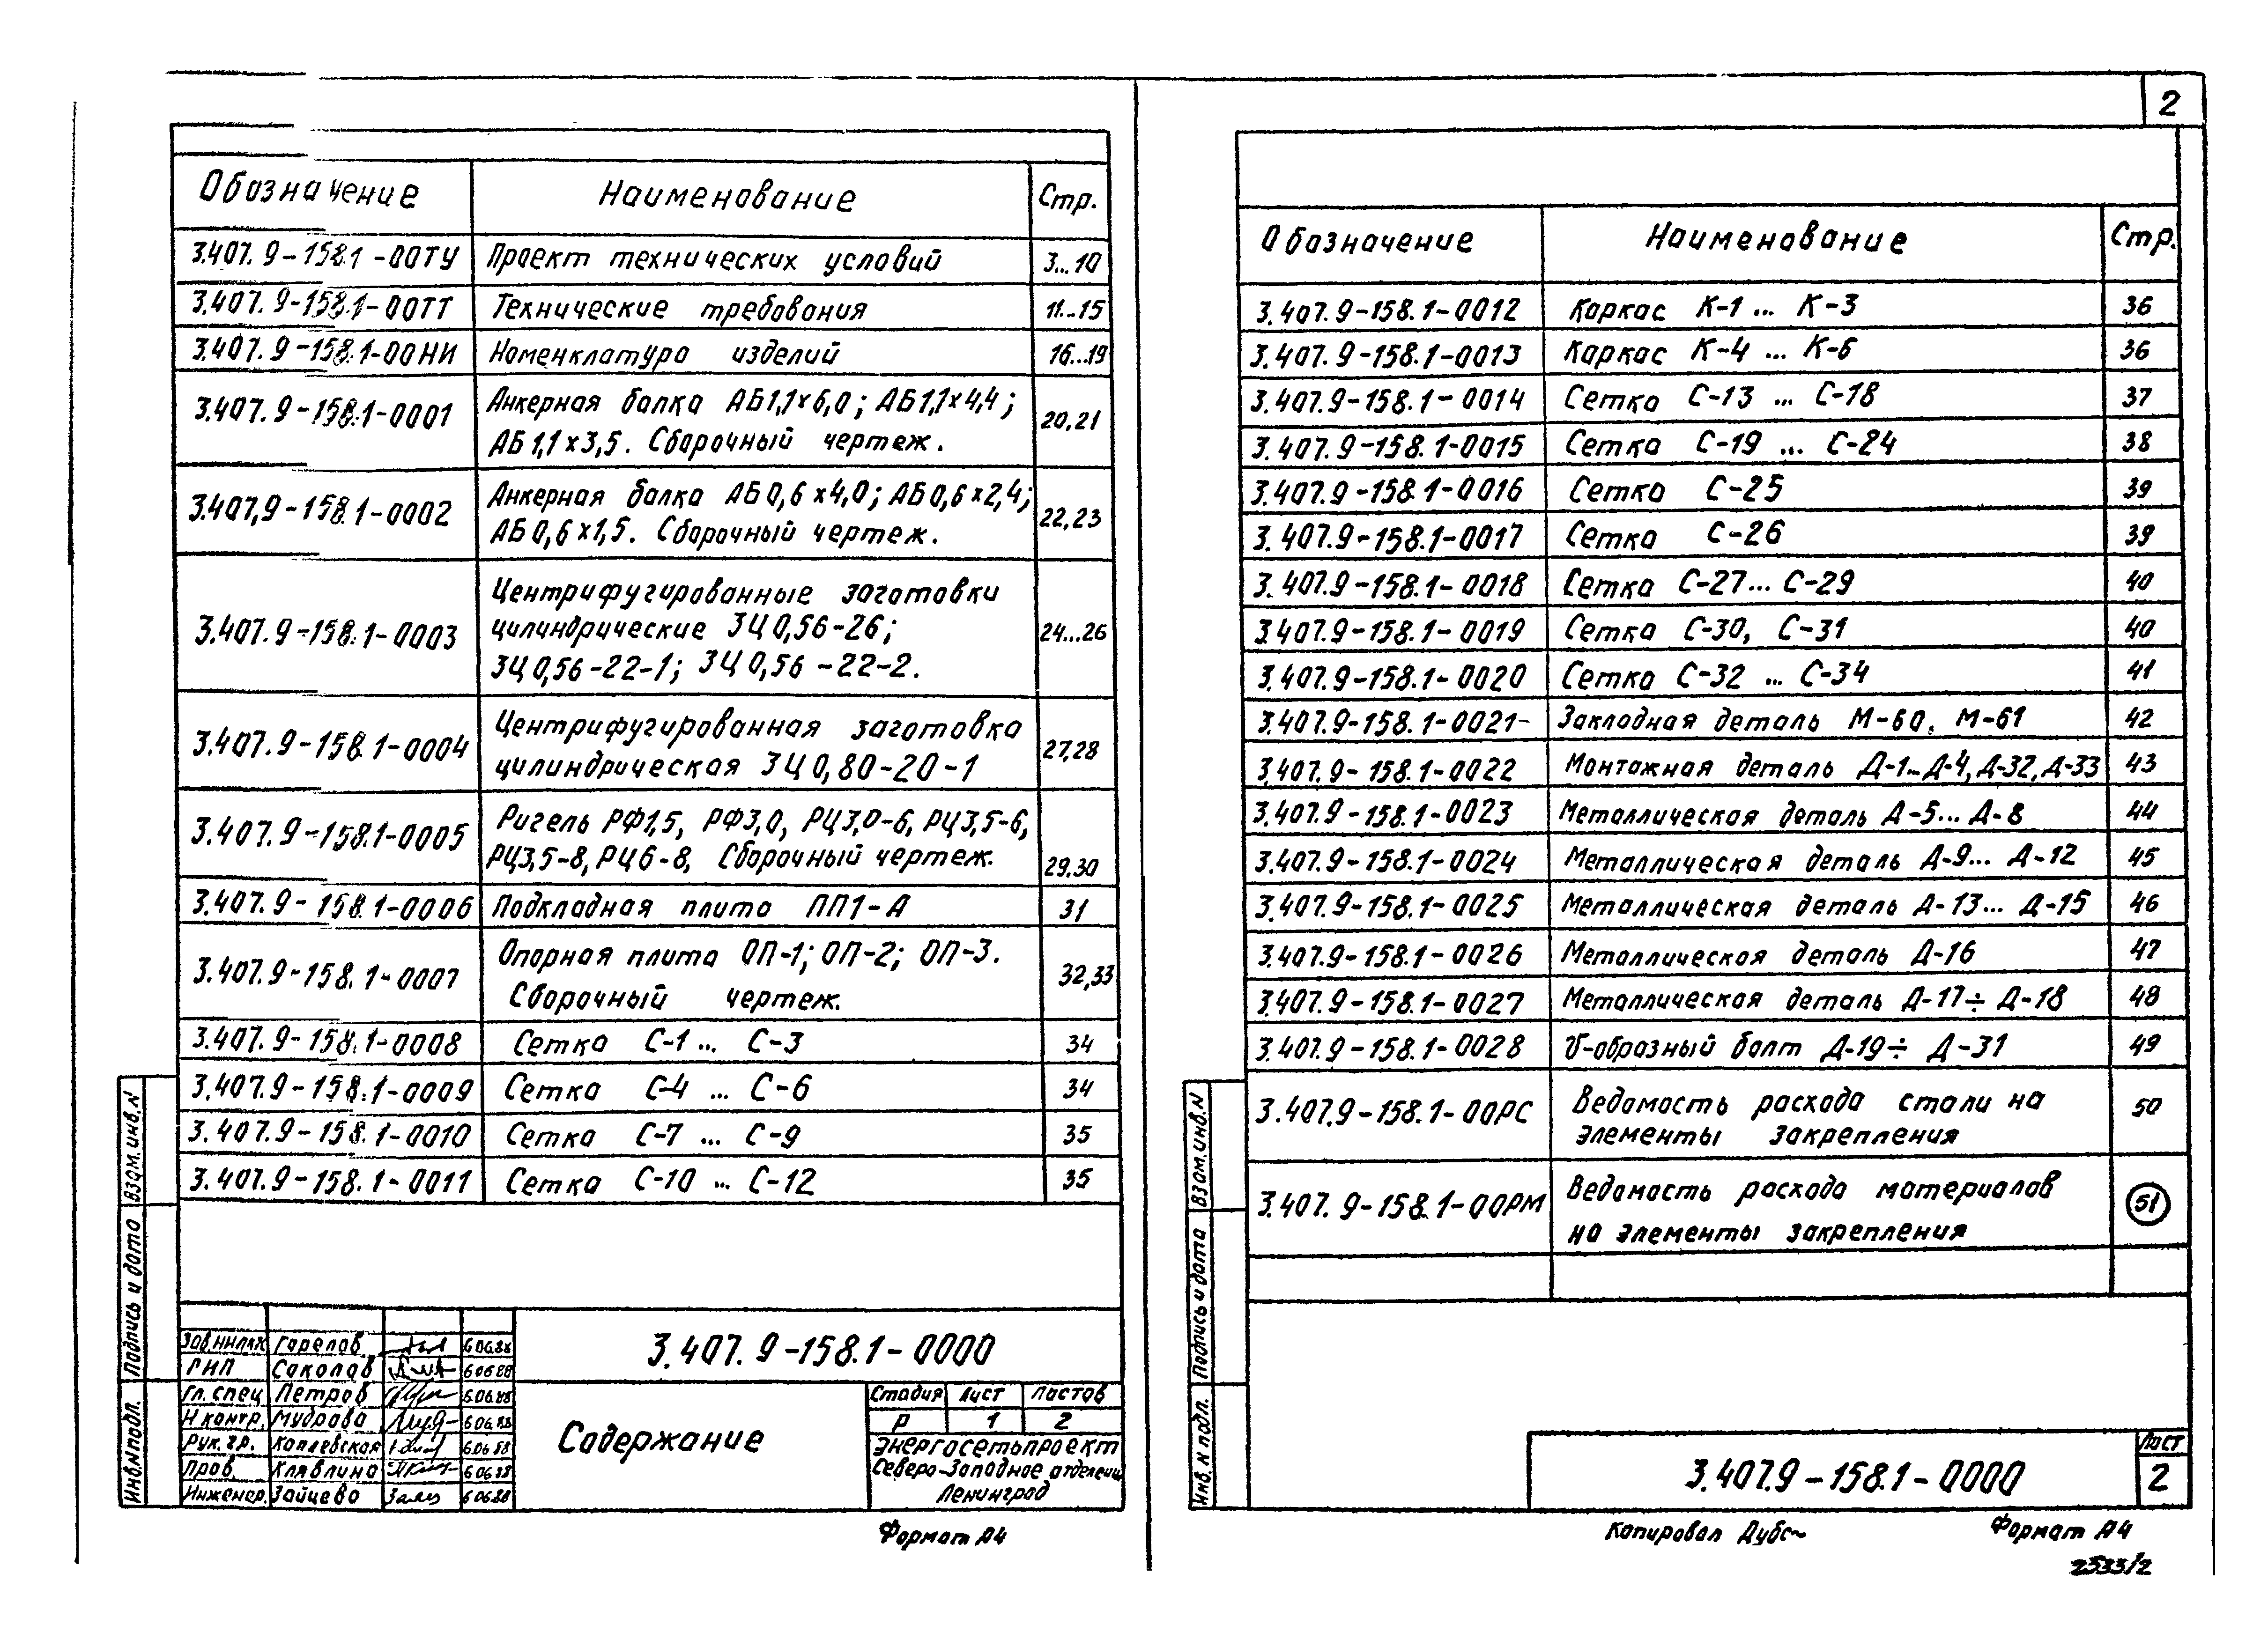 2
Обозначение Наименование Стр.
3.407.9-158.1-00ТУ Проект технических условий 3...10
3.407.9-158.1-00ТТ Технические требования 11...15
3.407.9-158.1-00НИ Номенклатура изделий 16...19
3.407.9-158.1-0001 Анкерная балка АБ1,1×6,0; АБ1,1×4,4; 20,21
АБ1,1×3,5. Сборочный чертеж.
3.407,9-158.1-0002 Анкерная балка АБ0,6×4,0; АБ0,6×2,4; 22,23
АБ0,6×1,5. Сборочный чертеж.
Центрифугированные заготовки
3.407.9-158.1-0003 цилиндрические ЗЦ0,56-26; 24...26
ЗЦ0,56-22-1; ЗЦ0,56-22-2.
3.407.9-158.1-0004 Центрифугированная заготовка 27,28
цилиндрическая ЗЦ0,80-20-1
3.407.9-158.1-0005 Ригель РФ1,5, РФ3,0, РЦ3,0-6, РЦ3,5-6,
РЦ3,5-8, РЦ6-8, Сборочный чертеж. 29,30
3.407.9-158.1-0006 Подкладная плита ПП1-А 31
3.407.9-158.1-0007 Опорная плита ОП-1; ОП-2; ОП-3. 32,33
Сборочный чертеж.
3.407.9-158.1-0008 Сетка С-1 ... С-3 34
3.407.9-158.1-0009 Сетка С-4 ... С-6 34
3.407.9-158.1-0010 Сетка С-7 ... С-9 35
3.407.9-158.1-0011 Сетка С-10 ... С-12 35
Взам.инв.N
Подпись и дата
Инв.N подл.
Зав.НИЛКЕ Горелов 6.06.88
ГИП Соколов 6.06.88
Гл. спец Петров 6.06.88
Н контр. Мудрова 6.06.88
Рук. гр. Коплевская 6.06.88
Пров. Клявлина 6.06.88
Инженер. Зайцева 6.06.88
3.407.9-158.1-0000
Содержание
Стадия Лист Листов
Р 1 2
Энергосетьпроект
Северо-Западное отделение
Ленинград
Формат А4
Обозначение Наименование Стр.
3.407.9-158.1-0012 Каркас К-1 ... К-3 36
3.407.9-158.1-0013 Каркас К-4 ... К-6 36
3.407.9-158.1-0014 Сетка С-13 ... С-18 37
3.407.9-158.1-0015 Сетка С-19 ... С-24 38
3.407.9-158.1-0016 Сетка С-25 39
3.407.9-158.1-0017 Сетка С-26 39
3.407.9-158.1-0018 Сетка С-27... С-29 40
3.407.9-158.1-0019 Сетка С-30, С-31 40
3.407.9-158.1-0020 Сетка С-32 ... С-34 41
3.407.9-158.1-0021- Закладная деталь М-60, М-61 42
3.407.9-158.1-0022 Монтажная деталь Д-1...Д-4, Д-32, Д-33 43
3.407.9-158.1-0023 Металлическая деталь Д-5... Д-8 44
3.407.9-158.1-0024 Металлическая деталь Д-9... Д-12 45
3.407.9-158.1-0025 Металлическая деталь Д-13... Д-15 46
3.407.9-158.1-0026 Металлическая деталь Д-16 47
3.407.9-158.1-0027 Металлическая деталь Д-17÷ Д-18 48
3.407.9-158.1-0028 U-образный болт Д-19÷ Д-31 49
3.407.9-158.1-00РС Ведомость расхода стали на 50
элементы закрепления
3.407.9-158.1-00РМ Ведомость расхода материалов 51
на элементы закрепления
Взам.инв.N
Подпись и дата
Инв. N подл.
3.407.9-158.1-0000
Лист
2
Копировал
Формат А4
2533/2